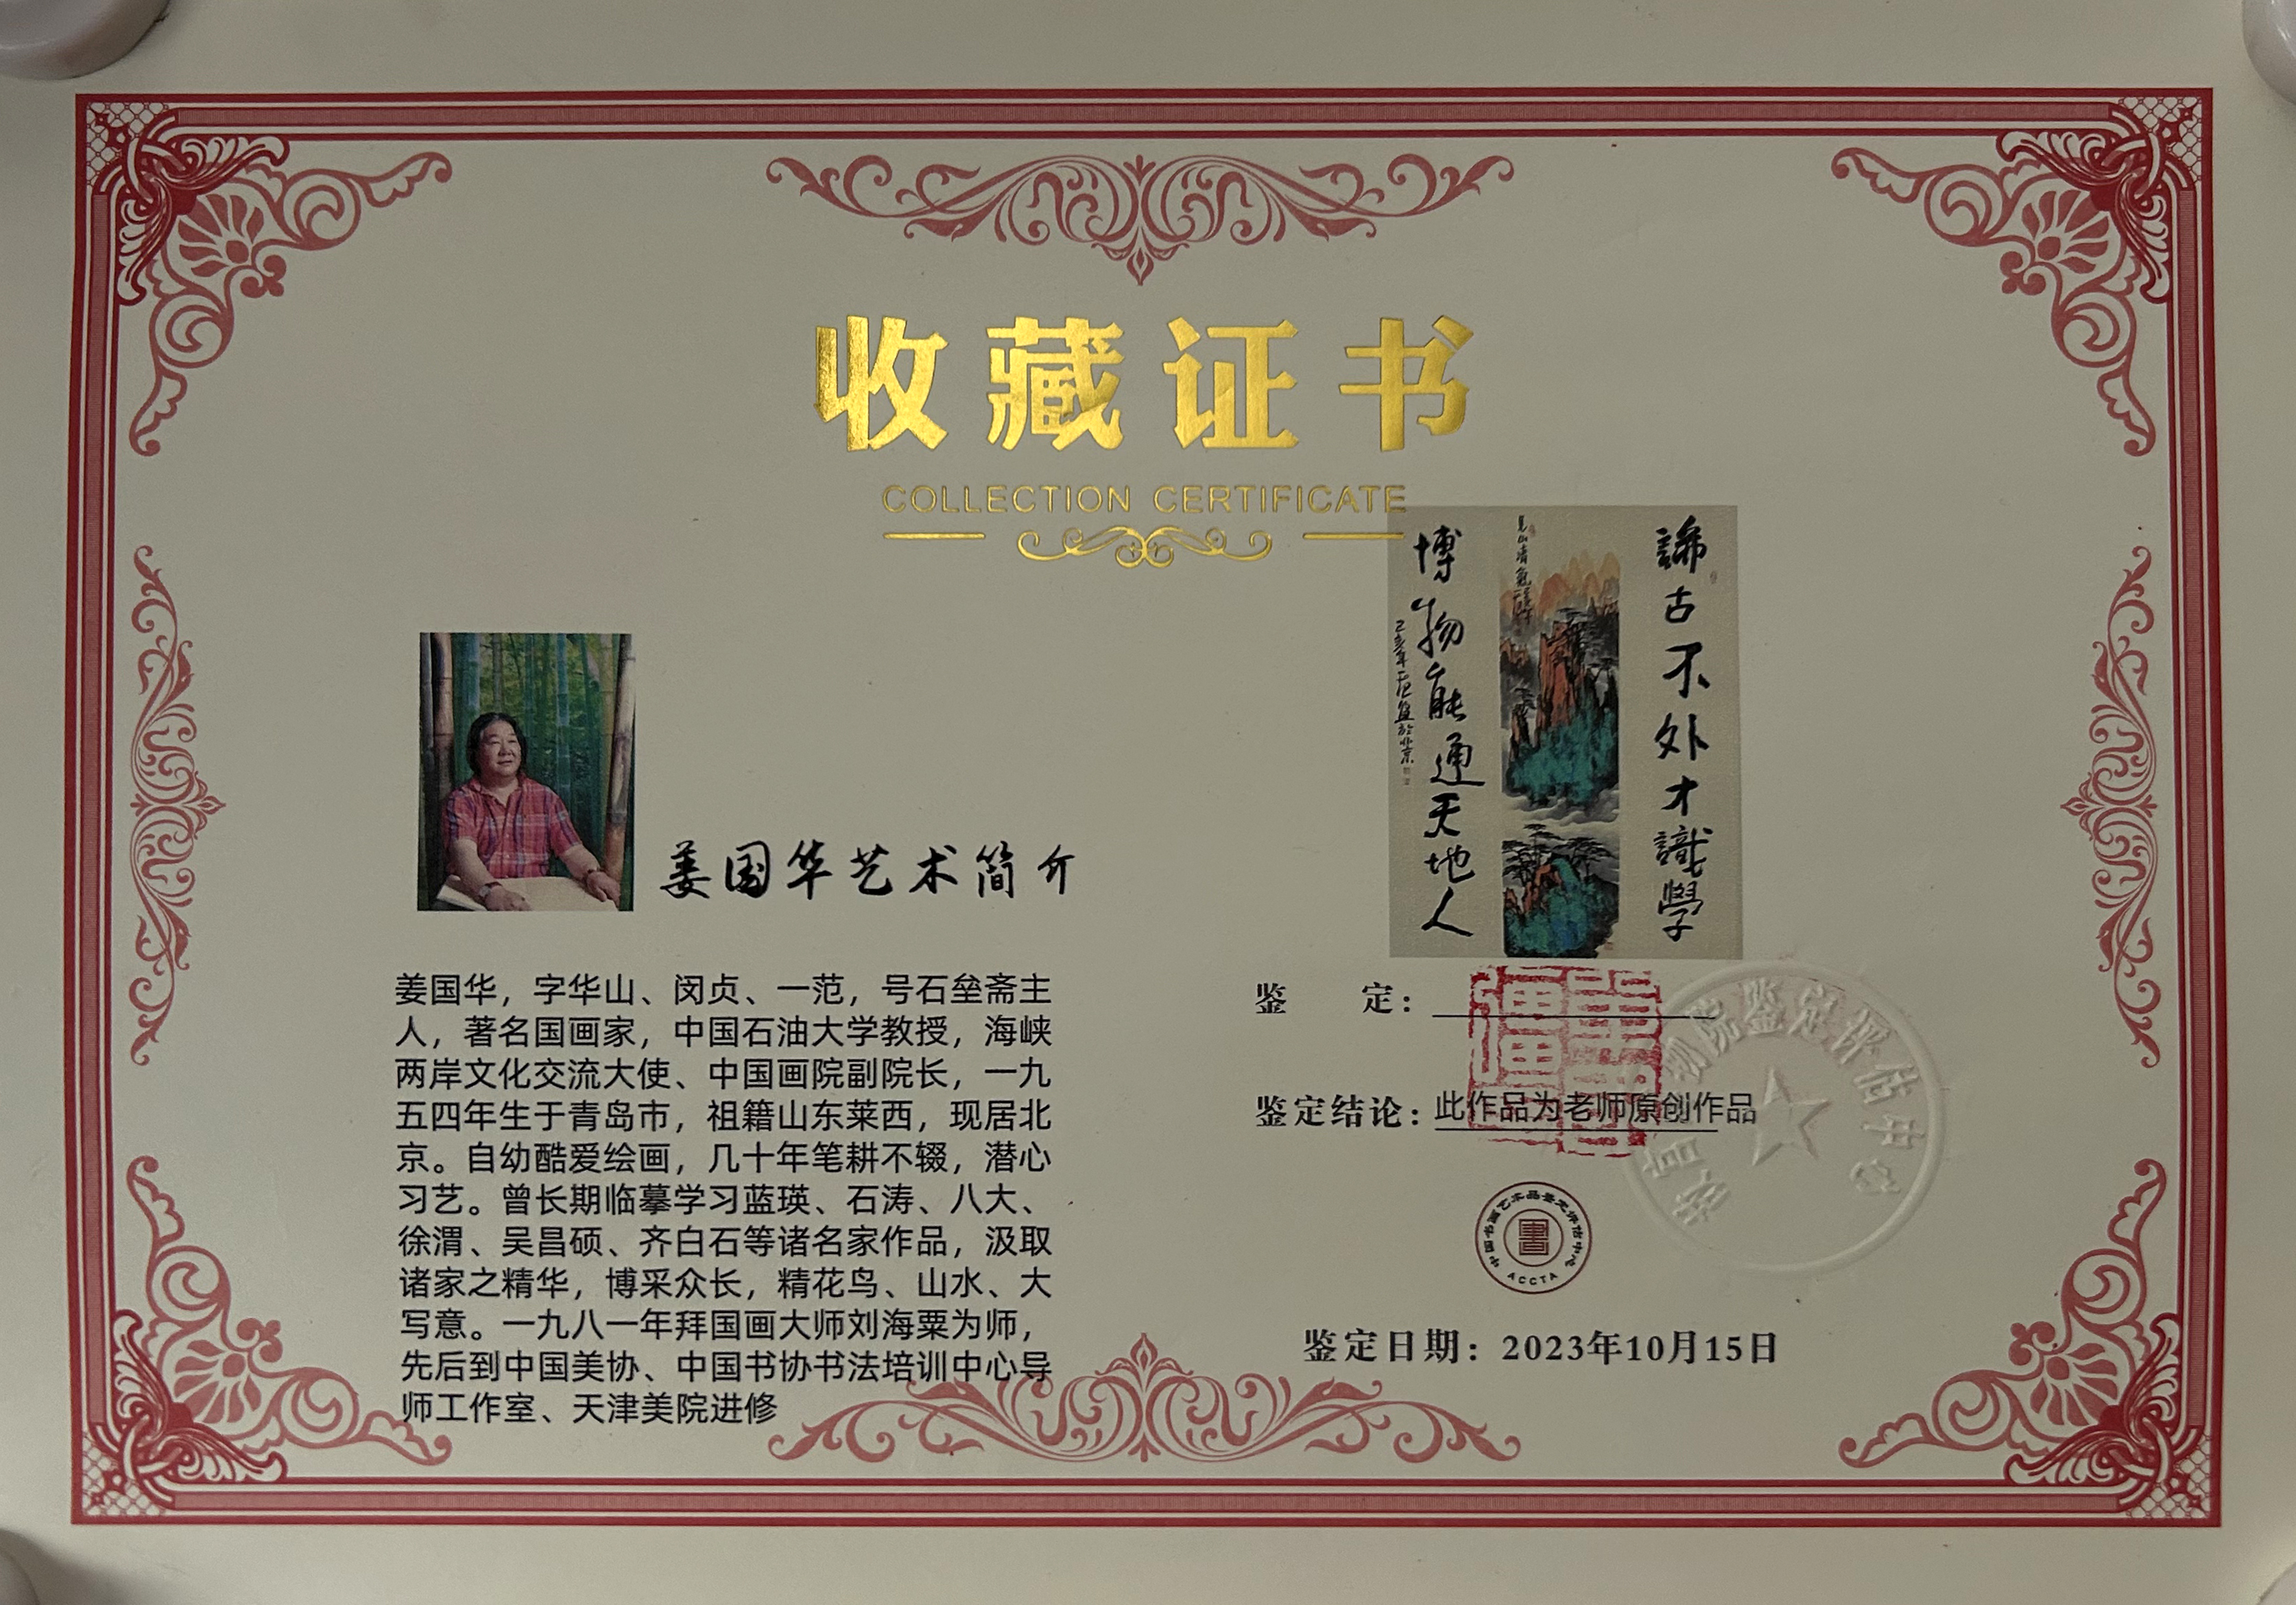 收藏证书
COLLECTION CERTIFICATE
諦古不外才識學
博物能通天地人
姜国华艺术简介
姜国华，字华山、闵贞、一范，号石垒斋主
人，著名国画家，中国石油大学教授，海峡
两岸文化交流大使、中国画院副院长，一九
五四年生于青岛市，祖籍山东莱西，现居北
京。自幼酷爱绘画，几十年笔耕不辍，潜心
习艺。曾长期临摹学习蓝瑛、石涛、八大、
徐渭、吴昌硕、齐白石等诸名家作品，汲取
诸家之精华，博采众长，精花鸟、山水、大
写意。一九八一年拜国画大师刘海粟为师，
先后到中国美协、中国书协书法培训中心导
师工作室、天津美院进修
鉴 定：
鉴定结论：此作品为老师原创作品
院鉴定评估中心
中国书画艺术品鉴定评估中心
ACCTA
鉴定日期：2023年10月15日